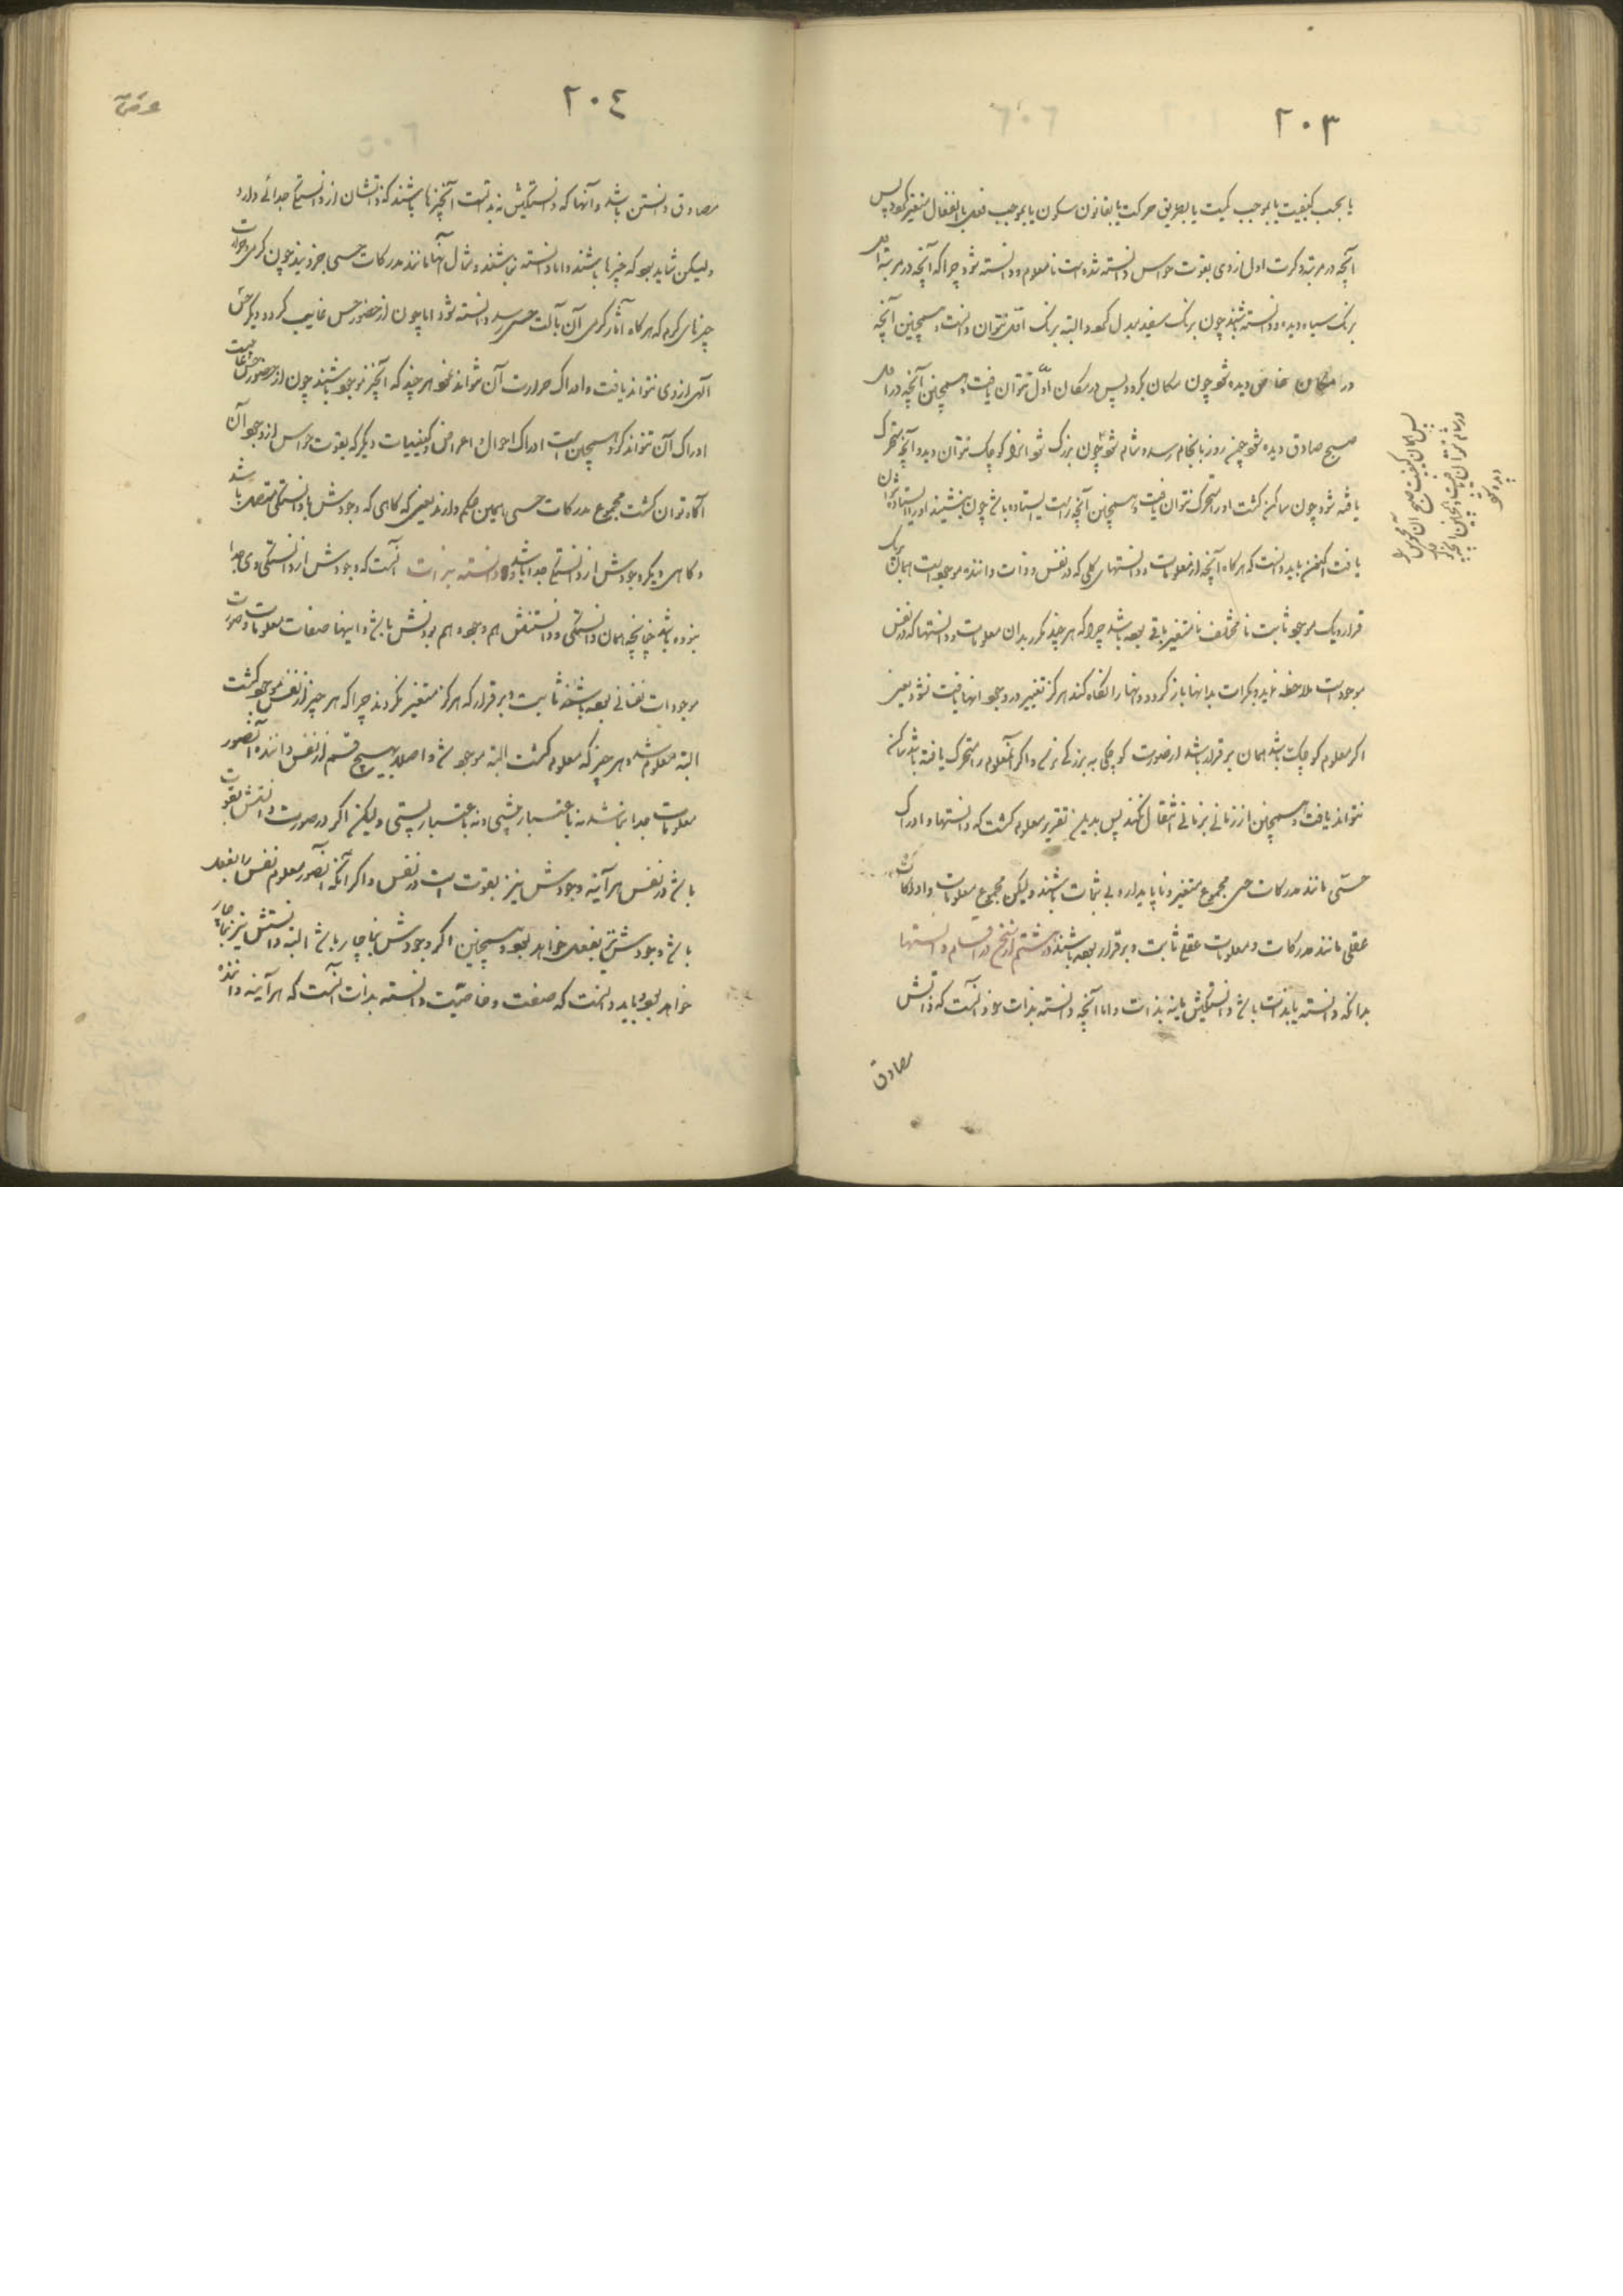 ٢٠٣
یا بحسب کیفیت یا بموجب کمیت یا بطریق حرکت یا بقانون سکون یا بموجب فعل یا انفعال متغیر گردد پس
آنچه در مرتبه و کرت اول از وی بقوت حواس دانسته شده است نا معلوم و دانسته شود چرا که آنچه در مرتبه اول
برنک سیاه دیده و دانسته باشد چون برنک سفید بدل گردد البته برنک اول نتوان دانست و همچنین آنچه
در مکان خاص دیده شود چون مکان بگردد پس در مکان اول نتوان یافت و همچنین آنچه در اول
صبح صادق دیده شود چون روز بانجام رسد و شام شود چون بزرگ شود او را کوچک نتوان دید و آنچه متحرک
یافته شود چون ساکن گشت او را متحرک نتوان یافت و همچنین آنچه راست ایستاده باشد چون بنشیند او را ایستاده نتوان
یافت اکنون باید دانست که هرگاه آنچه از معلومات و دانستهای کلی که در نفس و ذات داننده موجود است همان بیک
قرار و یک موجود ثابت نا مختلف نا متغیر باقی بوده باشد چرا که هر چند مکرر بدان معلومات و دانستها که در نفس
موجود است ملاحظه نماید و بکرات بدانها باز گردد و دانها را نگاه کند هرگز تغییر در وجود آنها یافت نشود یعنی
اگر معلوم کوچک باشد همان بر قرار باشد از صورت کوچکی به بزرگی نرسد و اگر آن معلوم را متحرک یافته باشد ساکن
نتواند یافت و همچنین از زمانی بزمانی انتقال نکند پس بدین تقریر معلوم گشت که دانستها و ادراک
حسی مانند مدرکات حسی مجموع متغیر و ناپایدار و بی ثبات باشند و لیکن مجموع معلومات و ادراکات
عقلی مانند مدرکات و معلومات عقلی ثابت و برقرار بوده باشند در هشتم از سخن در اقسام دانستها
بدانکه دانسته یا بذات باشد دانستگیش یا نه بذات و اما آنچه دانسته بذات بود آنست که ذاتش
مصادق
پس همان کیفیت صبح آن
در شام نتوان یافت و همچنین آنچه
دیده شود
٢٠٤
مصادق دانستن باشد و آنها که دانستگیش نه بذات است آنچیزها باشند که ذاتشان از دانستگی جدائی دارد
و لیکن شاید بود که چیزها باشند و اما دانسته نباشند و مثال آنها مانند مدرکات حسی جزویند چون گرمی و حرارت
چیزهای گرم که هرگاه آثار گرمی آن بآلت حس رسد دانسته شود اما چون از حضور حس غایب گردد دیگر حس
آلهی از وی نتواند یافت و ادراک حرارت آن نتواند نمود هر چند که آنچیز موجود باشند چون از حضور حس غایب است
ادراک آن نتواند کرد و همچنین است ادراک احوال و اعراض و کیفیات دیگر که بقوت حواس از وجود آن
آگاه توان گشت مجموع مدرکات حسی همین حکم دارند یعنی که گاهی که وجودش با دانستگی متصل باشد
و گاهی دیگر وجودش از دانستگی جدا باشد و دانسته بذات آنست که وجودش از دانستگی وی جدا
نبوده باشد چنانچه همان دانستگی و دانستنش هم وجود و هم بودنش باشد و اینها صفات معلومات و صورت
موجودات نفسانی بوده باشند ثابت و بر قرار که هرگز متغیر نگردند چرا که هر چیز از نفس موجود گشت
البته معلوم شد و هر چیز که معلوم گشت البته موجود شد و اصلا بهیچ قسم از نفس داننده آن صور
معلومات جدا نباشد نه باعتبار پیشی و نه باعتبار پستی و لیکن اگر در صورت دانستنش بقوت
باشد در نفس هرآینه وجودش نیز بقوت است در نفس و اگر آنکه آن صور معلوم نفس را بفعل
باشد وجودش نیز بفعل خواهد بود و همچنین اگر وجودش بناچار باشد البته دانستنش نیز بناچار
خواهد بود و باید دانست که صفت و خاصیت دانسته بذات آنست که هرآینه داننده